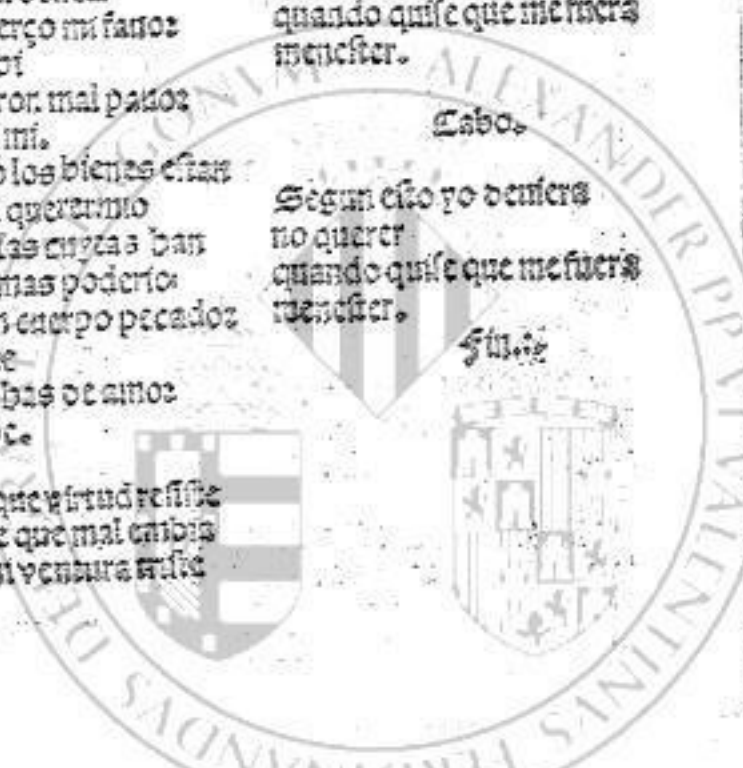 erço mi fauor
ron mal pauor
mi.
los bienes estan
querer mio
las cuytas dan
mas poderio
cuerpo pecador
e
bas de amor
ce.
que virtud resiste
e que mal enbia
ventura triste
quando quise que me fuera
menester.
Cabo.
Segun esto yo deuiera
no querer
quando quise que me fuera
menester.
Fin.
ALEXANDER PP VI VALENTINVS
FERDINANDVS